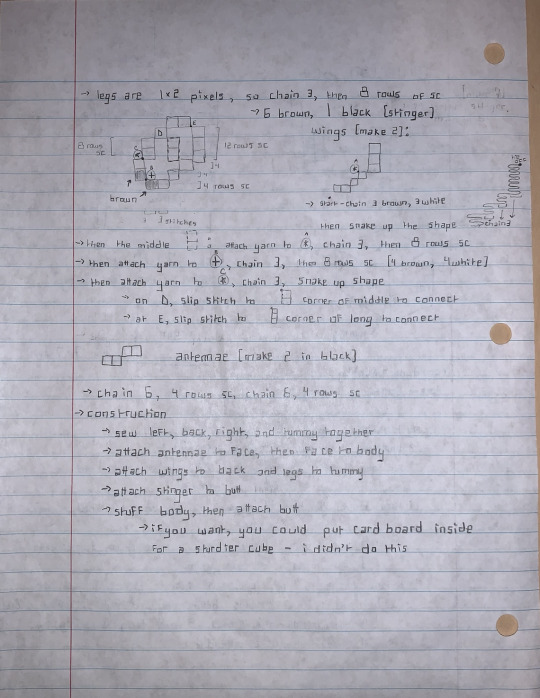 → legs are 1×2 pixels, so chain 3, then 8 rows of sc
→ 6 brown, 1 black [stinger]
wings [make 2]:
E
D
8 rows sc
12 rows sc
C
A
B
4
4
4 rows sc
brown
3 stitches
→ start-chain 3 brown, 3 white
then snake up the shape
chain 3
→ then the middle, attach yarn to, chain 3, then 8 rows sc
→ then attach yarn to, chain 3, then 8 rows sc [4 brown, 4 white]
→ then attach yarn to, chain 3, snake up shape
→ on D, slip stitch to corner of middle to connect
→ at E, slip stitch to corner of long to connect
antennae [make 2 in black]
→ chain 6, 4 rows sc, chain 6, 4 rows sc
→ construction
→ sew left, back, right, and tummy together
→ attach antennae to face, then face to body
→ attach wings to back and legs to tummy
→ attach stinger to butt
→ stuff body, then attach butt
→ if you want, you could put card board inside
for a sturdier cube - i didn't do this